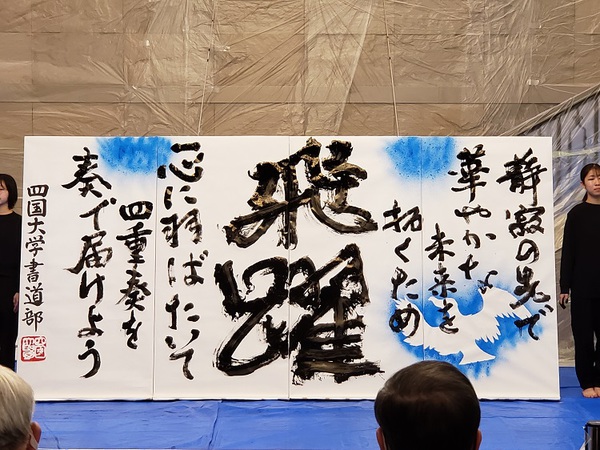 静寂の先で
華やかな
未来を
拓くため
飛躍
心に羽ばたいて
四重奏を
奏で届けよう
四国大学書道部